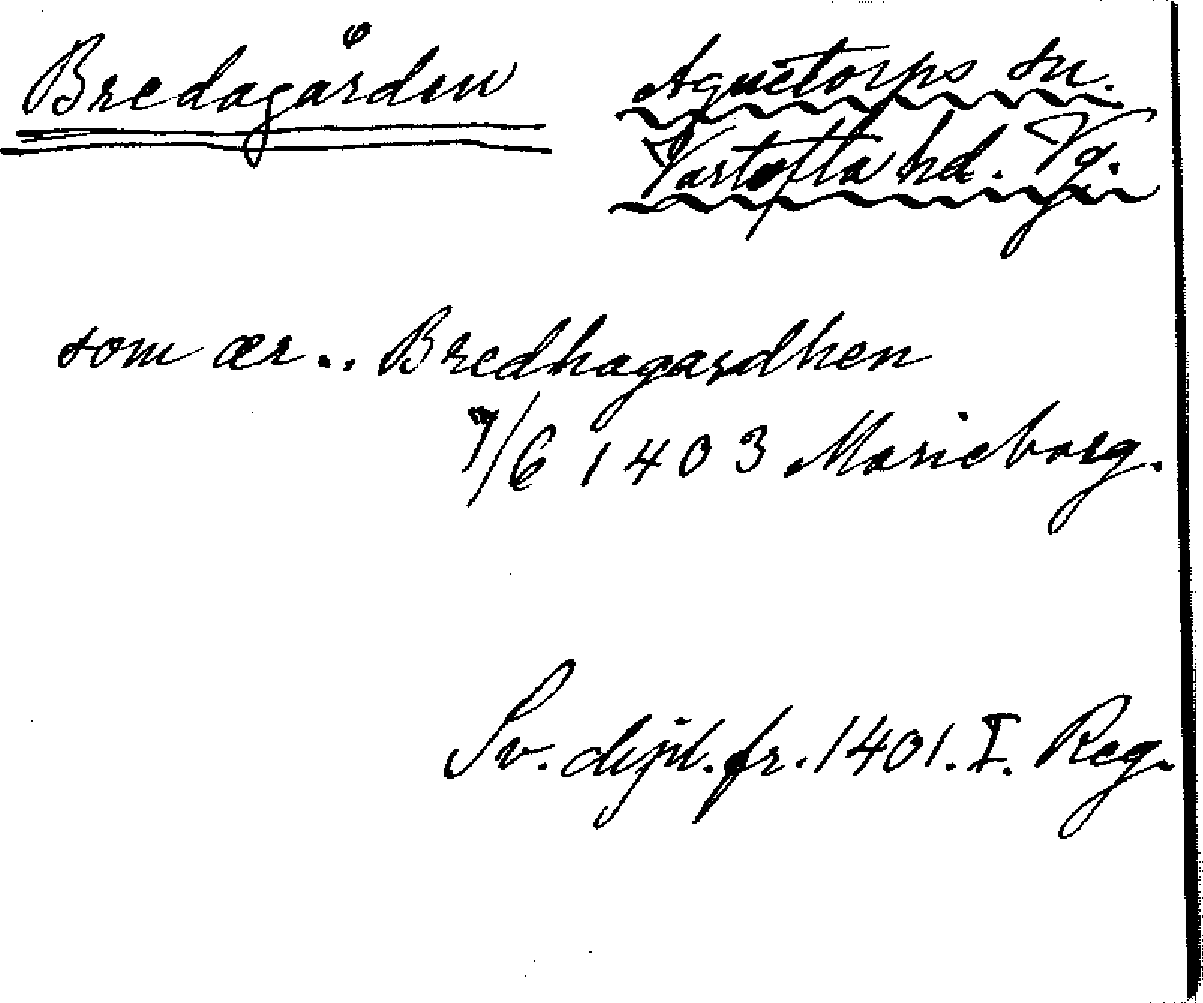 Bredagården
Agnetorps sn.
Vartofta hd. Vg.
som ær.. Bredhagardhen
7/6 1403 Marieborg.
Sv. dipl. fr. 1401. I. Reg.